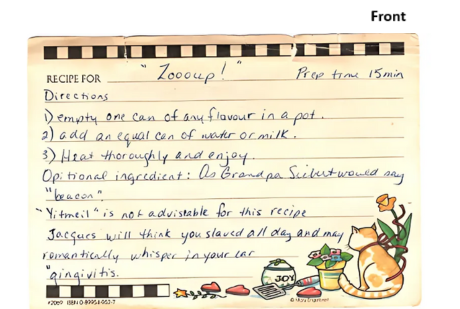 Front
RECIPE FOR "Zoooup!" Prep time 15min
Directions
1) empty one can of any flavour in a pot.
2) add an equal can of water or milk.
3) Heat thoroughly and enjoy.
Opitional ingredient: As Grandpa Siebert would say
"beacon".
"Yitmeil" is not advistable for this recipe
Jacques will think you slaved all day and may
romantically whisper in your ear
"gingivitis.
JOY